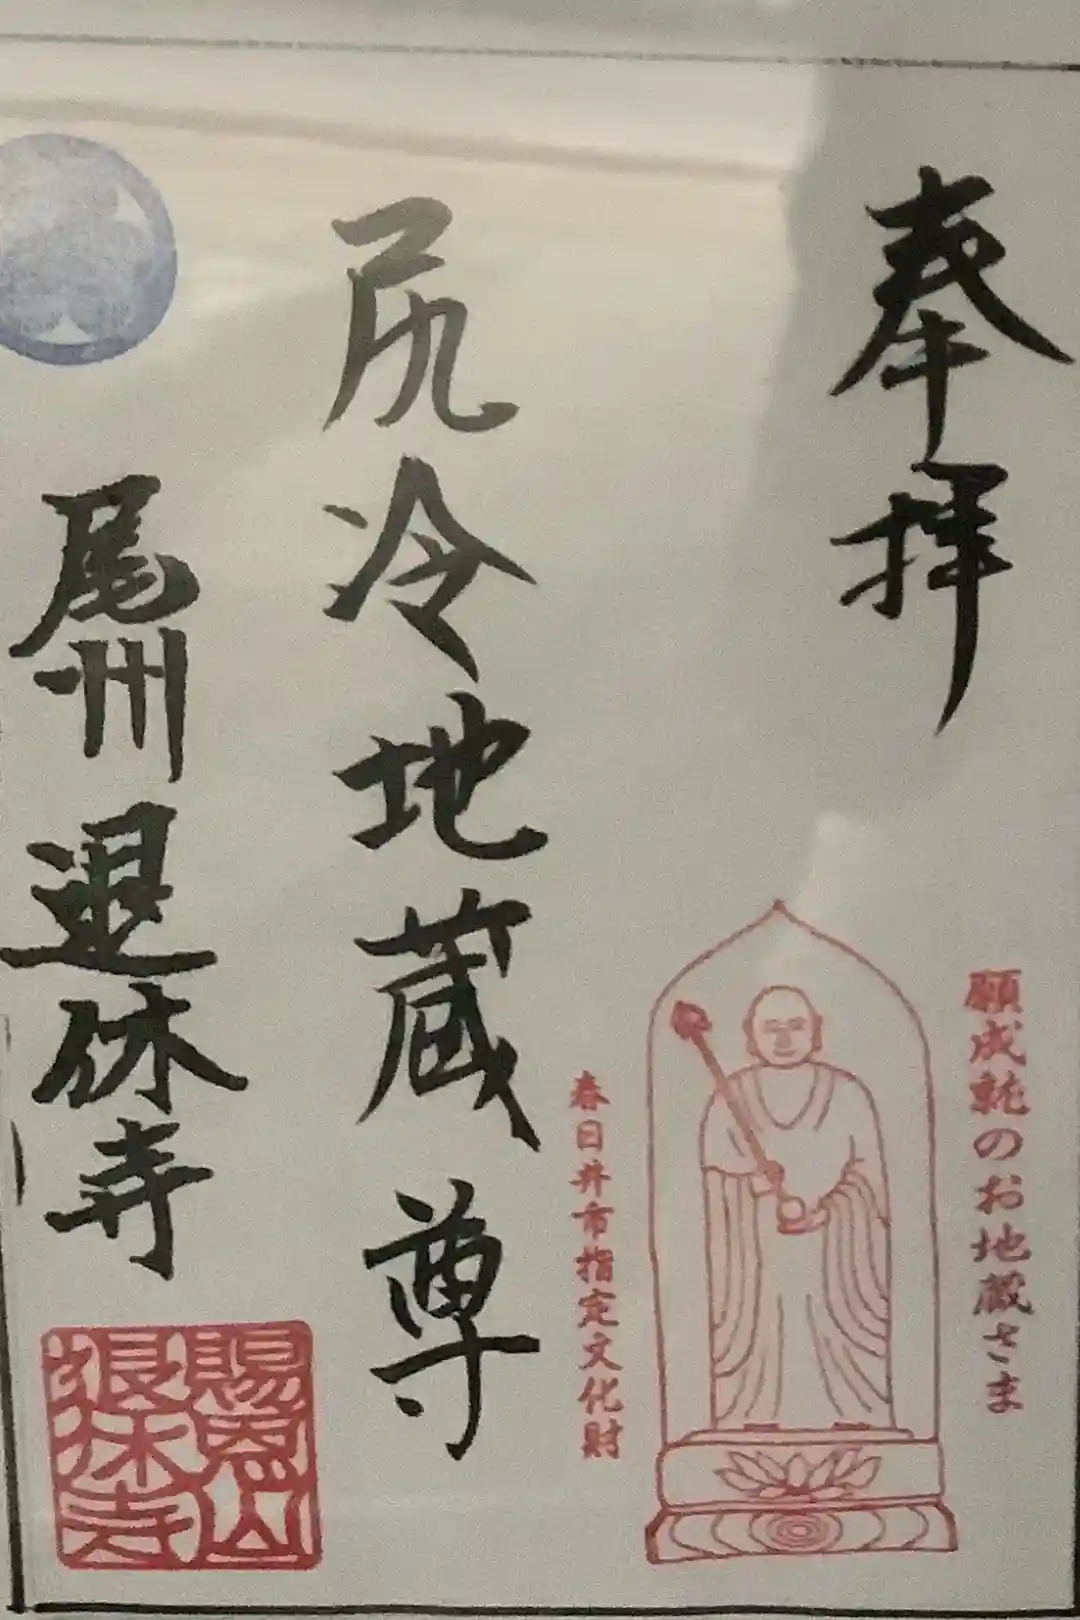 奉拝
願成就のお地蔵さま
春日井市指定文化財
尻冷地蔵尊
尾州退休寺
賜恩山
退休寺